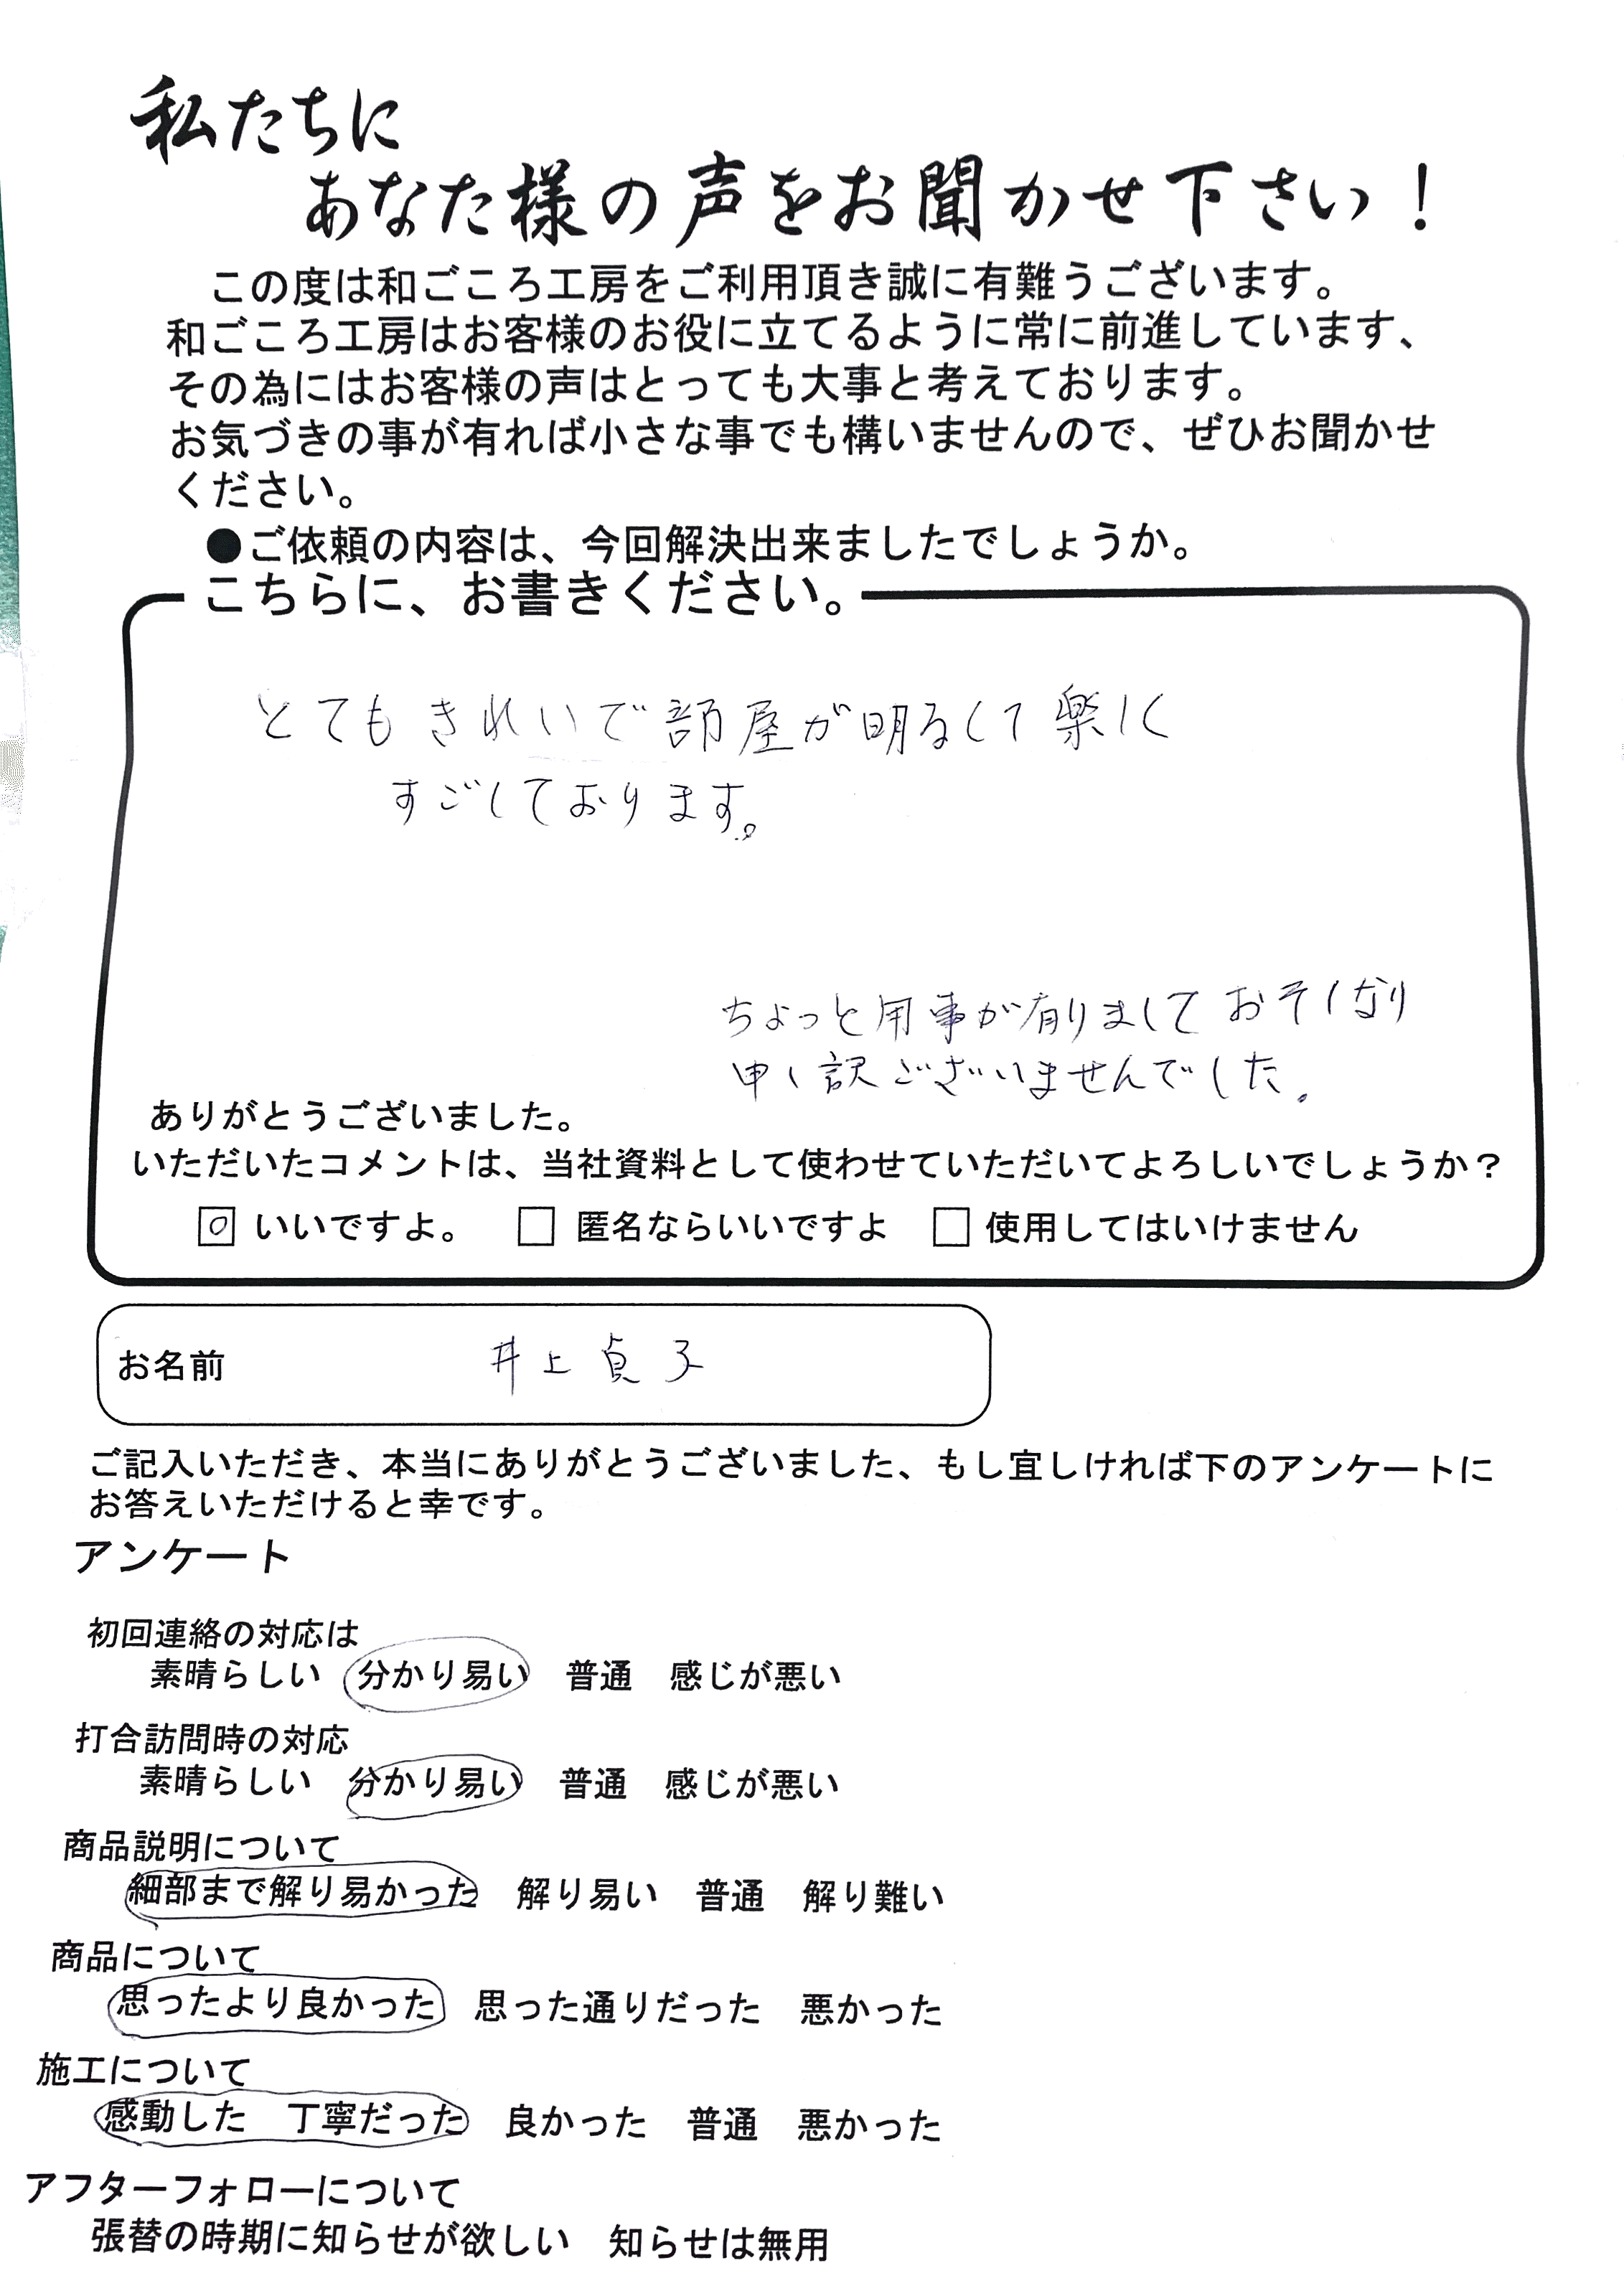 私たちに
あなた様の声をお聞かせ下さい！
この度は和ごころ工房をご利用頂き誠に有難うございます。
和ごころ工房はお客様のお役に立てるように常に前進しています、
その為にはお客様の声はとっても大事と考えております。
お気づきの事が有れば小さな事でも構いませんので、ぜひお聞かせ
ください。
●ご依頼の内容は、今回解決出来ましたでしょうか。
こちらに、お書きください。
とてもきれいで部屋が明るくて楽しく
すごしております。
ちょっと用事が有りましておそくなり
申し訳ございませんでした。
ありがとうございました。
いただいたコメントは、当社資料として使わせていただいてよろしいでしょうか？
☐ いいですよ。 ☐ 匿名ならいいですよ ☐ 使用してはいけません
お名前 井上貞子
ご記入いただき、本当にありがとうございました、もし宜しければ下のアンケートに
お答えいただけると幸です。
アンケート
初回連絡の対応は
素晴らしい 分かり易い 普通 感じが悪い
打合訪問時の対応
素晴らしい 分かり易い 普通 感じが悪い
商品説明について
細部まで解り易かった 解り易い 普通 解り難い
商品について
思ったより良かった 思った通りだった 悪かった
施工について
感動した 丁寧だった 良かった 普通 悪かった
アフターフォローについて
張替の時期に知らせが欲しい 知らせは無用